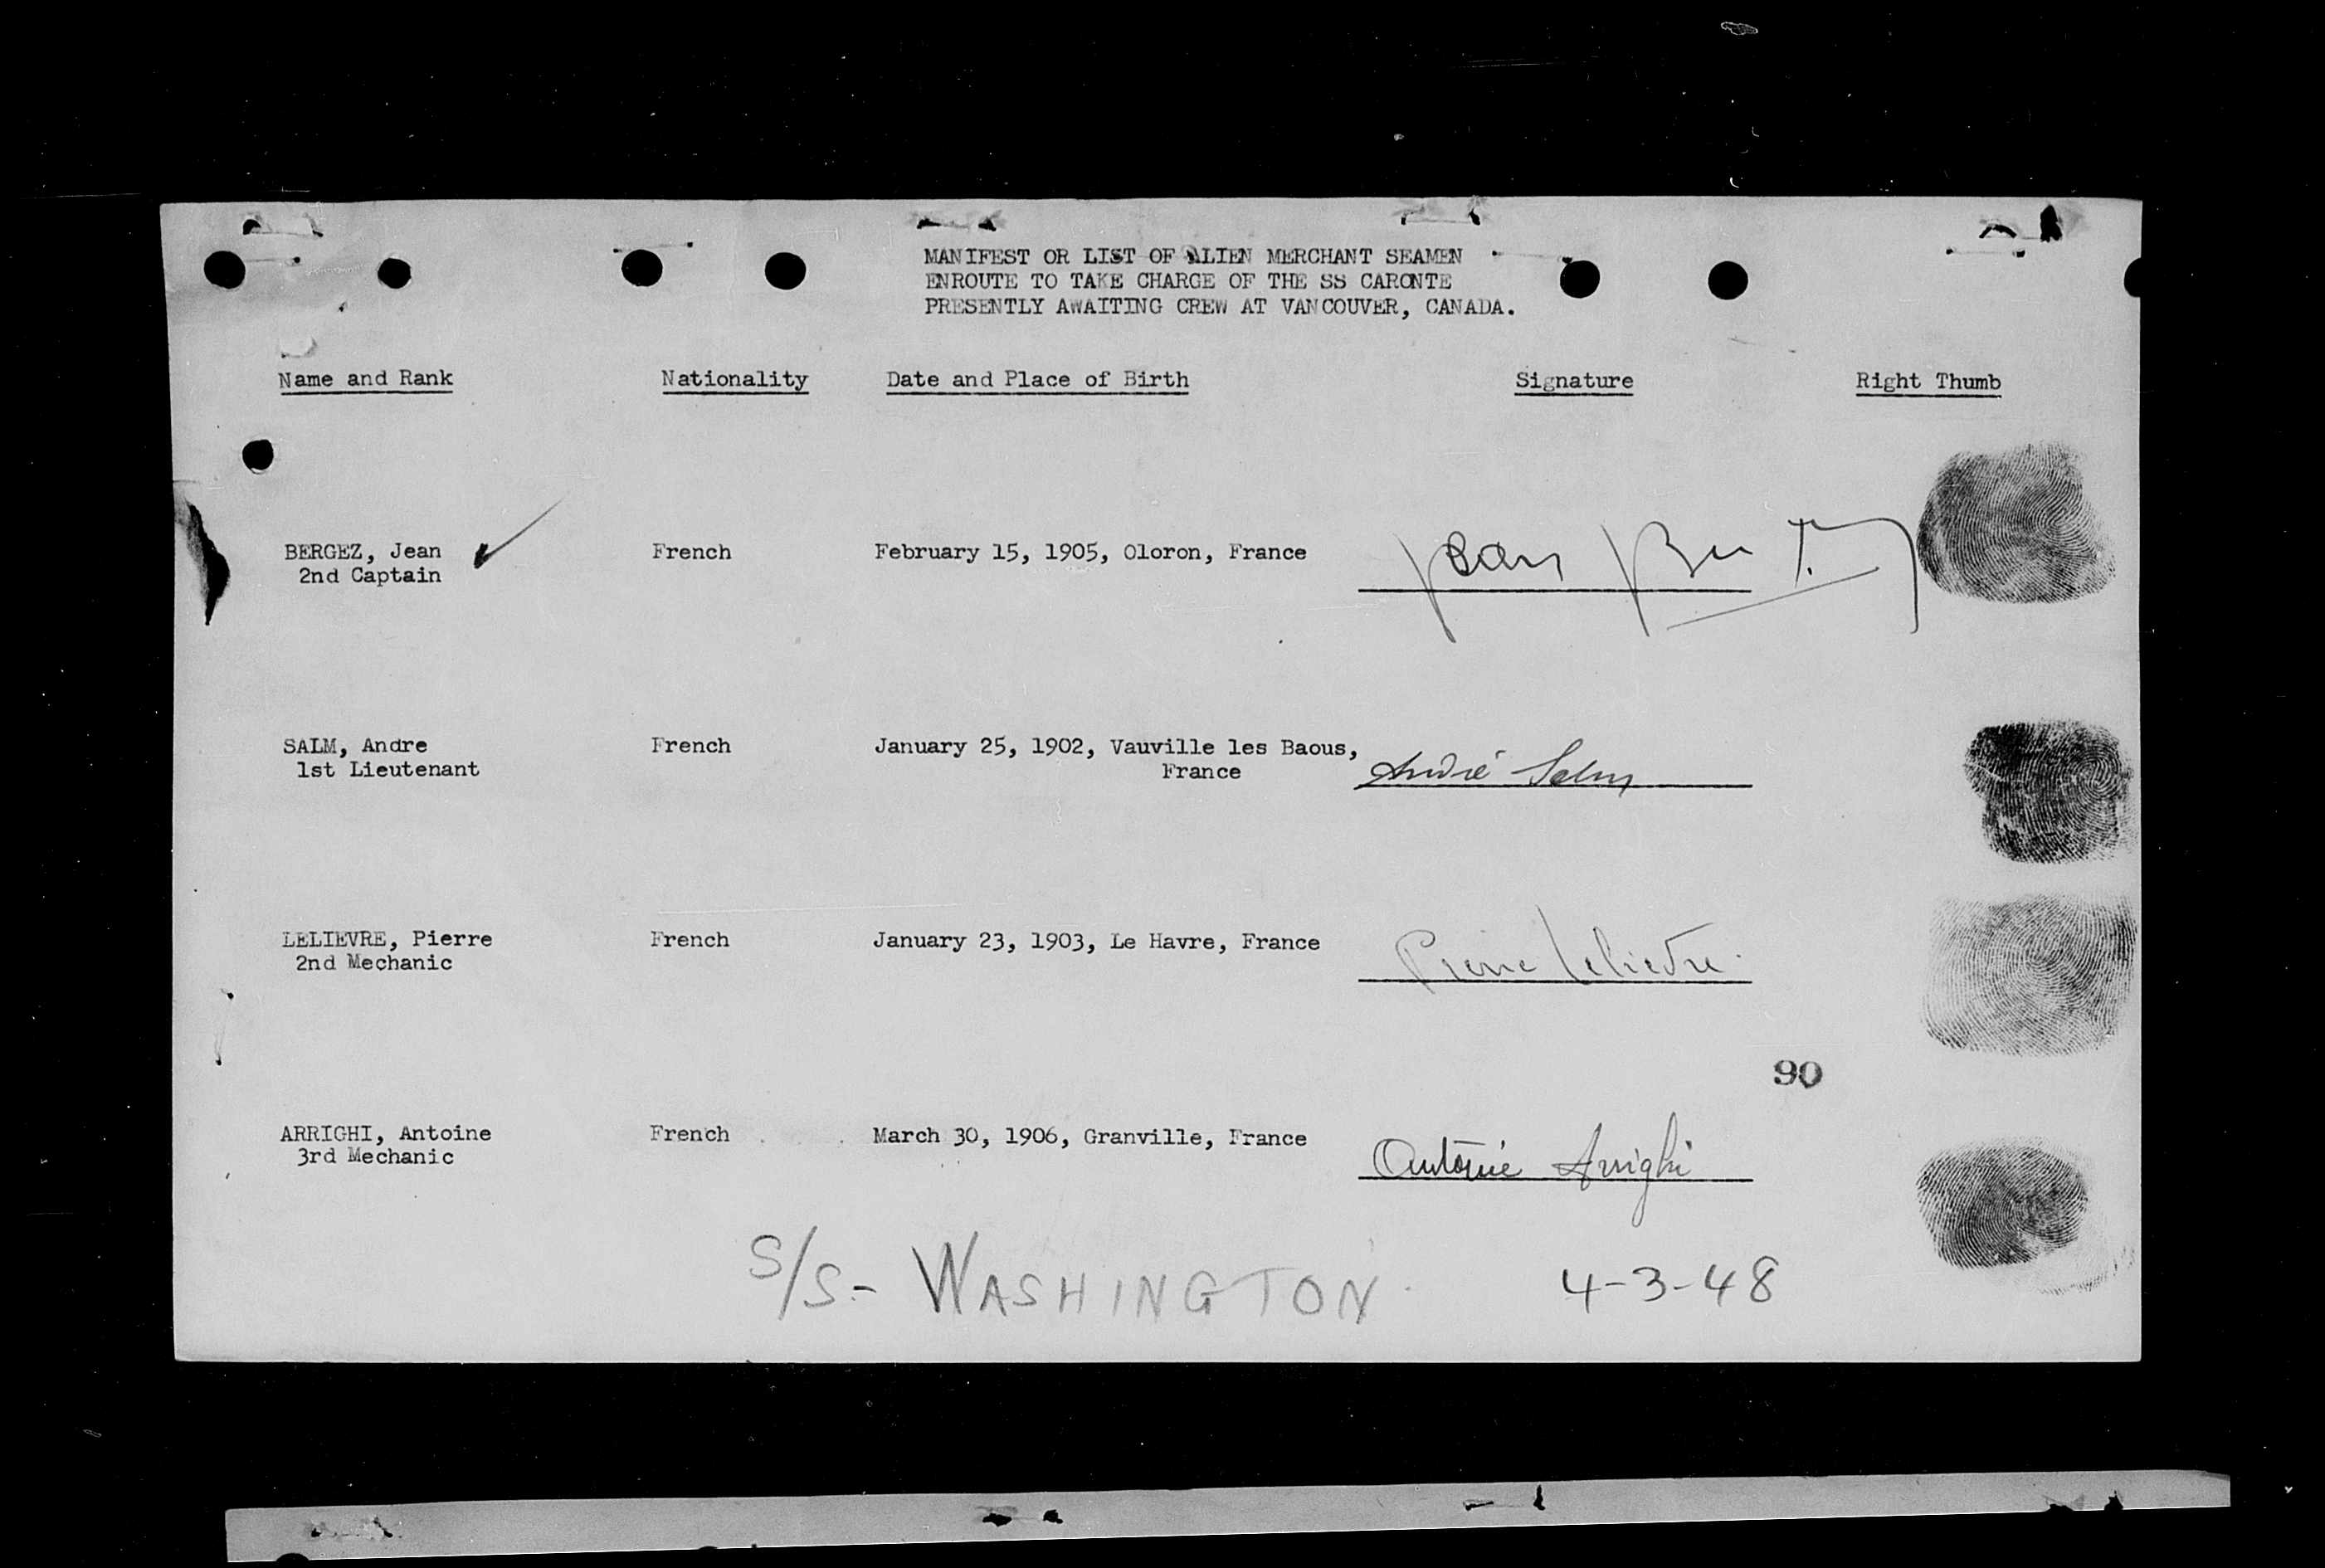 MANIFEST OR LIST OF ALIEN MERCHANT SEAMEN
ENROUTE TO TAKE CHARGE OF THE SS CARONTE
PRESENTLY AWAITING CREW AT VANCOUVER, CANADA.
Name and Rank Nationality Date and Place of Birth Signature Right Thumb
BERGEZ, Jean French February 15, 1905, Oloron, France Jean
2nd Captain
SALM, Andre French January 25, 1902, Vauville les Baous,
1st Lieutenant France André Salm
LELIEVRE, Pierre French January 23, 1903, Le Havre, France
2nd Mechanic Pierre Lelievre
90
ARRIGHI, Antoine French March 30, 1906, Granville, France
3rd Mechanic Antoine Arrighi
S/S- WASHINGTON 4-3-48